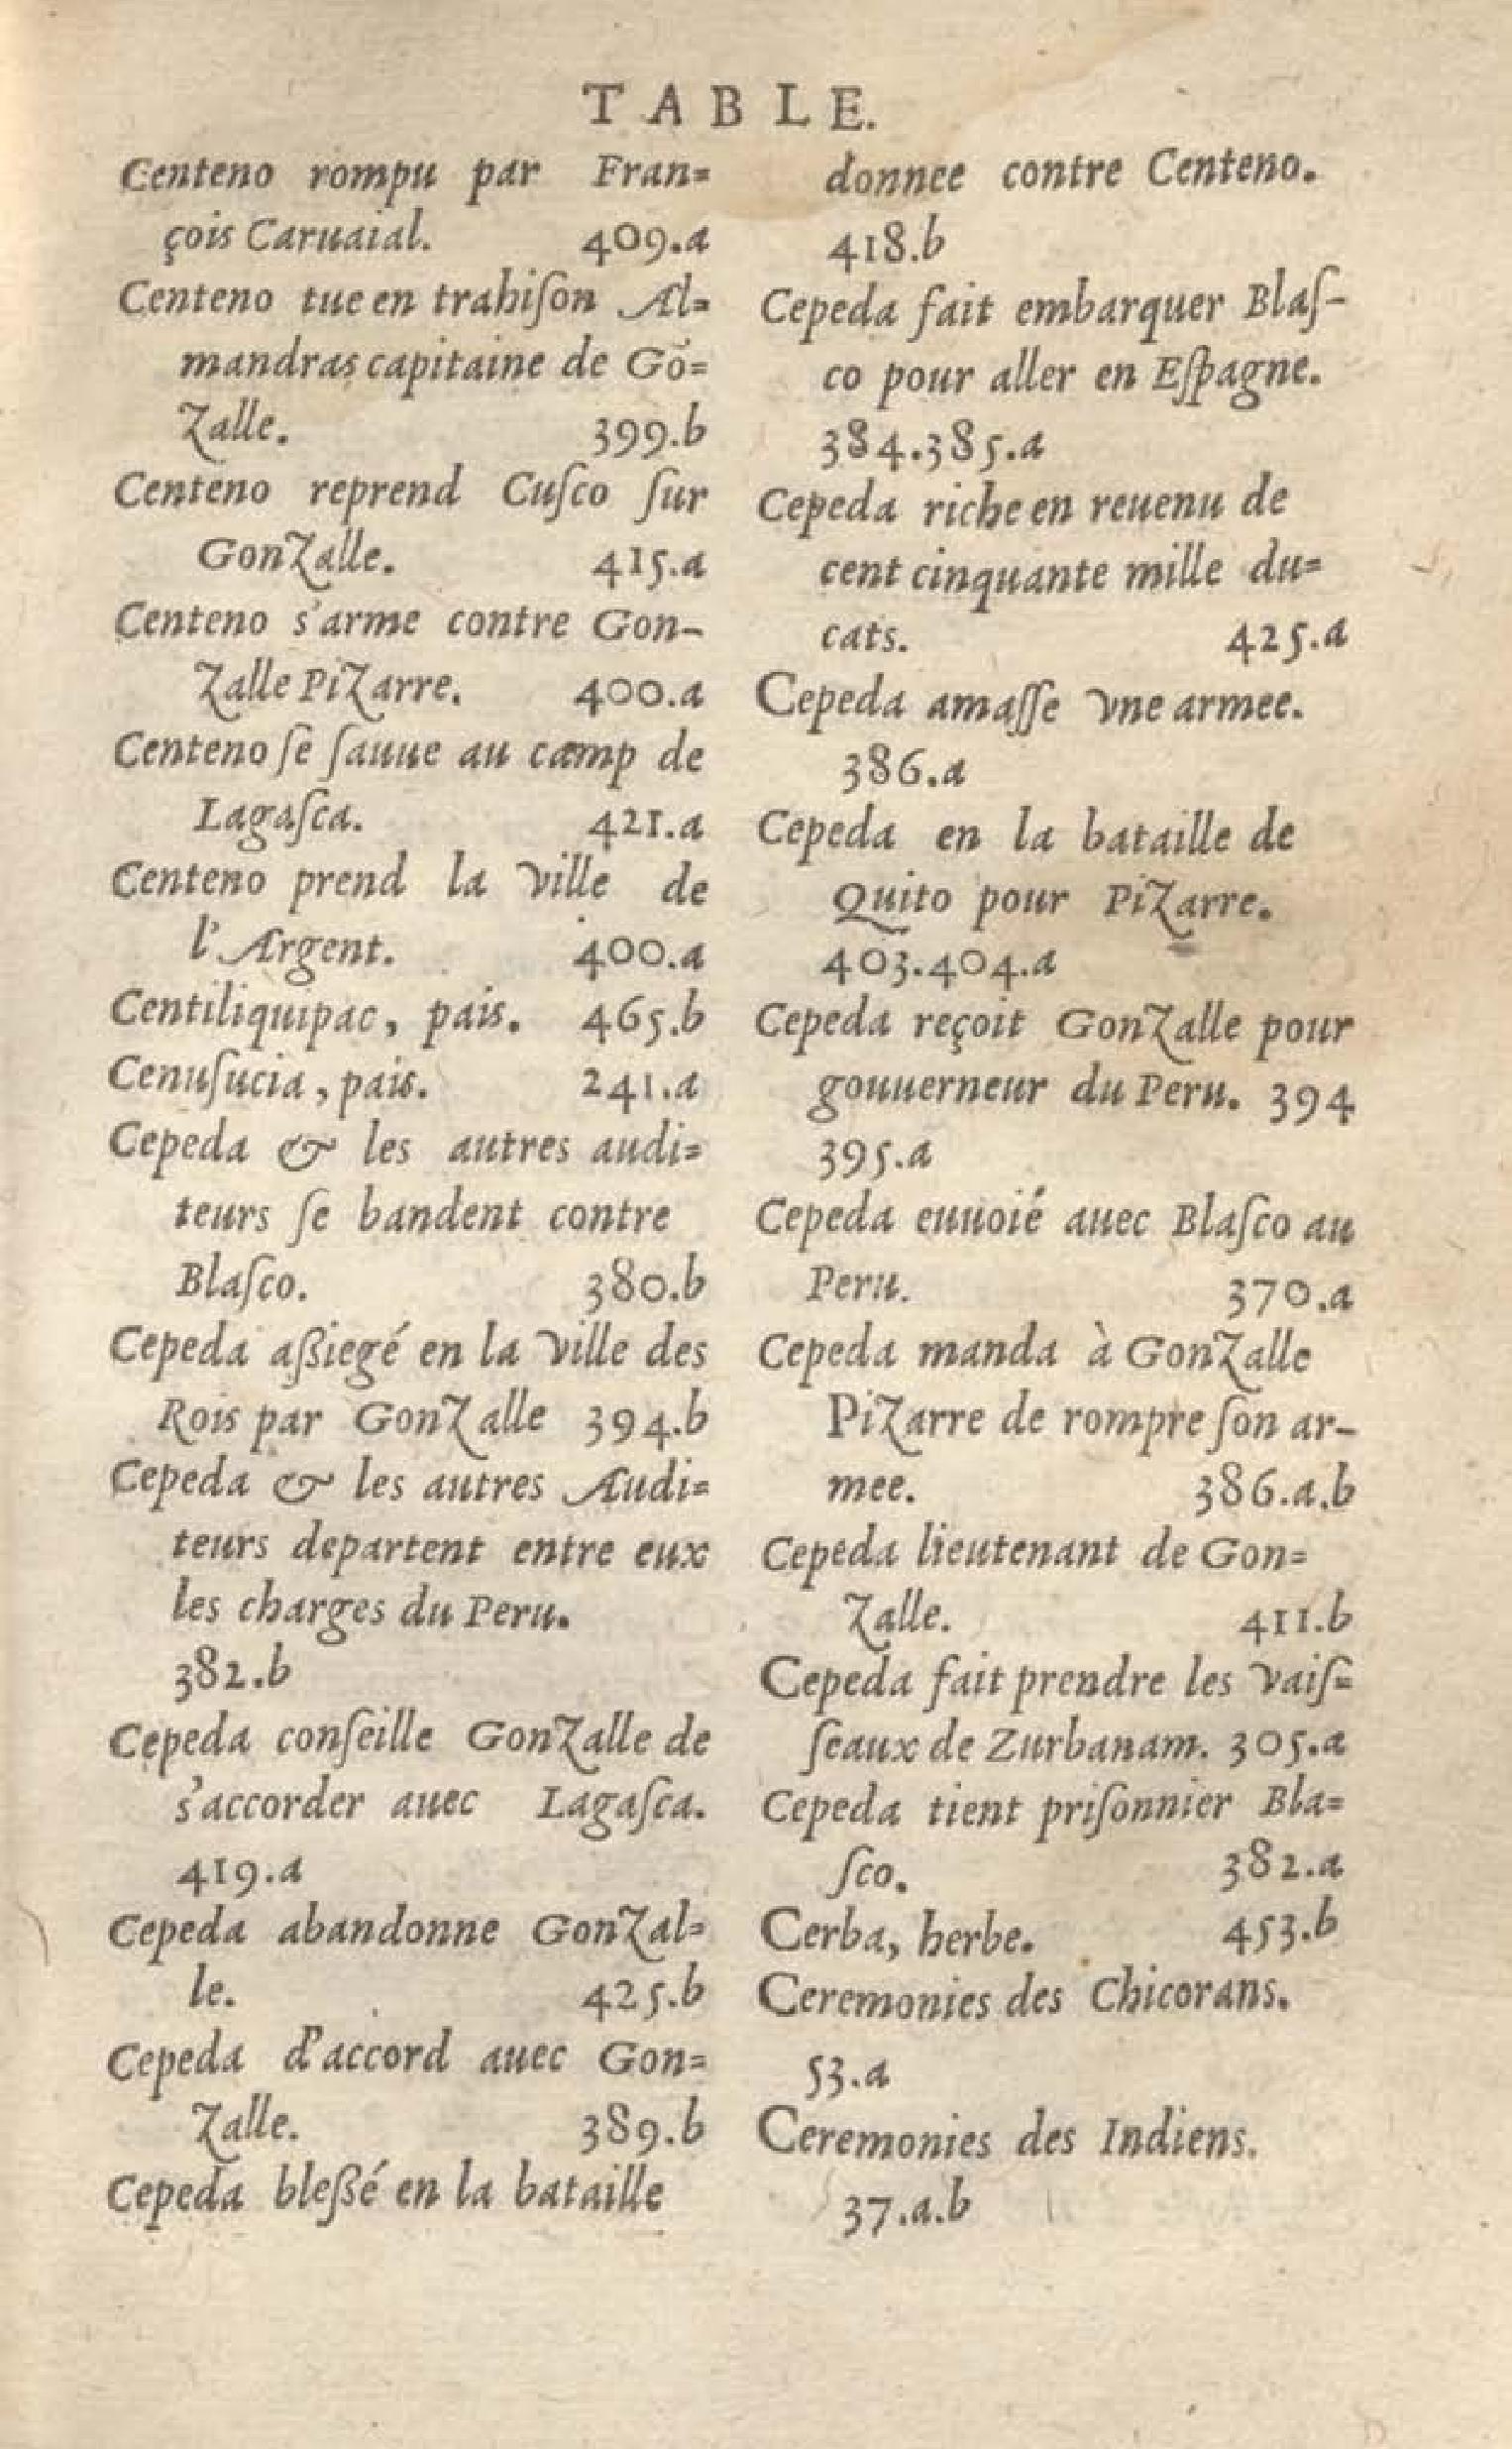 TABLE.
Centeno rompu par Fran=
çois Caruaial. 409.a
Centeno tue en trahiſon Al=
mandras capitaine de Gõ=
zalle. 399.b
Centeno reprend Cuſco ſur
Gonzalle. 415.a
Centeno s'arme contre Gon-
zalle Pizarre. 400.a
Centeno ſe ſauue au camp de
Lagaſca. 421.a
Centeno prend la ville de
l'Argent. 400.a
Centiliquipac, païs. 465.b
Cenuſucia, païs. 241.a
Cepeda & les autres audi=
teurs ſe bandent contre
Blaſco. 380.b
Cepeda aßiegé en la ville des
Rois par Gonzalle 394.b
Cepeda & les autres Audi=
teurs departent entre eux
les charges du Peru.
382.b
Cepeda conſeille Gonzalle de
s'accorder auec Lagaſca.
419.a
Cepeda abandonne Gonzal=
le. 425.b
Cepeda d'accord auec Gon=
zalle. 389.b
Cepeda bleßé en la bataille
donnee contre Centeno.
418.b
Cepeda fait embarquer Blaſ-
co pour aller en Eſpagne.
384.385.a
Cepeda riche en reuenu de
cent cinquante mille du=
cats. 425.a
Cepeda amaſſe vne armee.
386.a
Cepeda en la bataille de
Quito pour Pizarre.
403.404.a
Cepeda reçoit Gonzalle pour
gouuerneur du Peru. 394
395.a
Cepeda euuoié auec Blaſco au
Peru. 370.a
Cepeda manda à Gonzalle
Pizarre de rompre ſon ar-
mee. 386.a.b
Cepeda lieutenant de Gon=
zalle. 411.b
Cepeda fait prendre les vaiſ=
ſeaux de Zurbanam. 305.a
Cepeda tient priſonnier Bla=
ſco. 382.a
Cerba, herbe. 453.b
Ceremonies des Chicorans.
53.a
Ceremonies des Indiens.
37.a.b